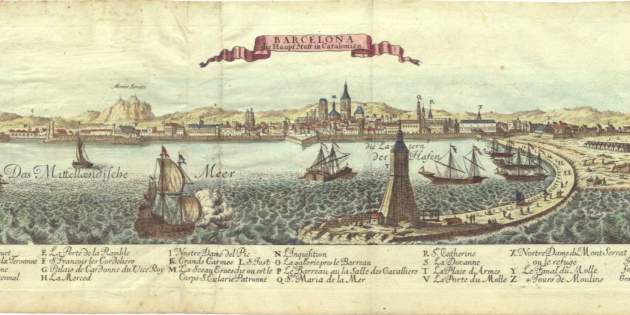 BARCELONA
die Haupt Statt in Catalonien.
Das Mittellændische Meer
die Latern
der Hafen
E La Porte de la Ramble
F S. François les Cordeliers
G Palais de Cardonne du Vice Roy
H La Merced
I Nostre Dame del Pic
K Grands Carmes L S. Just
M La Sceay Evesché ou est le
Corps S. Eularie Patronne
N L'inquisition
O La galerie pro le Barreau
P Le Barreau ou la Salle des Cavalliers
Q S. Maria de la Mer
R S. Catherine
S La Douanne
T La Place d'Armes
V La Porte du Molle
X Nostre Dame du Mont Serrat
ou le refuge
Y Le Fanal du Molle
Z Tours de Moulins